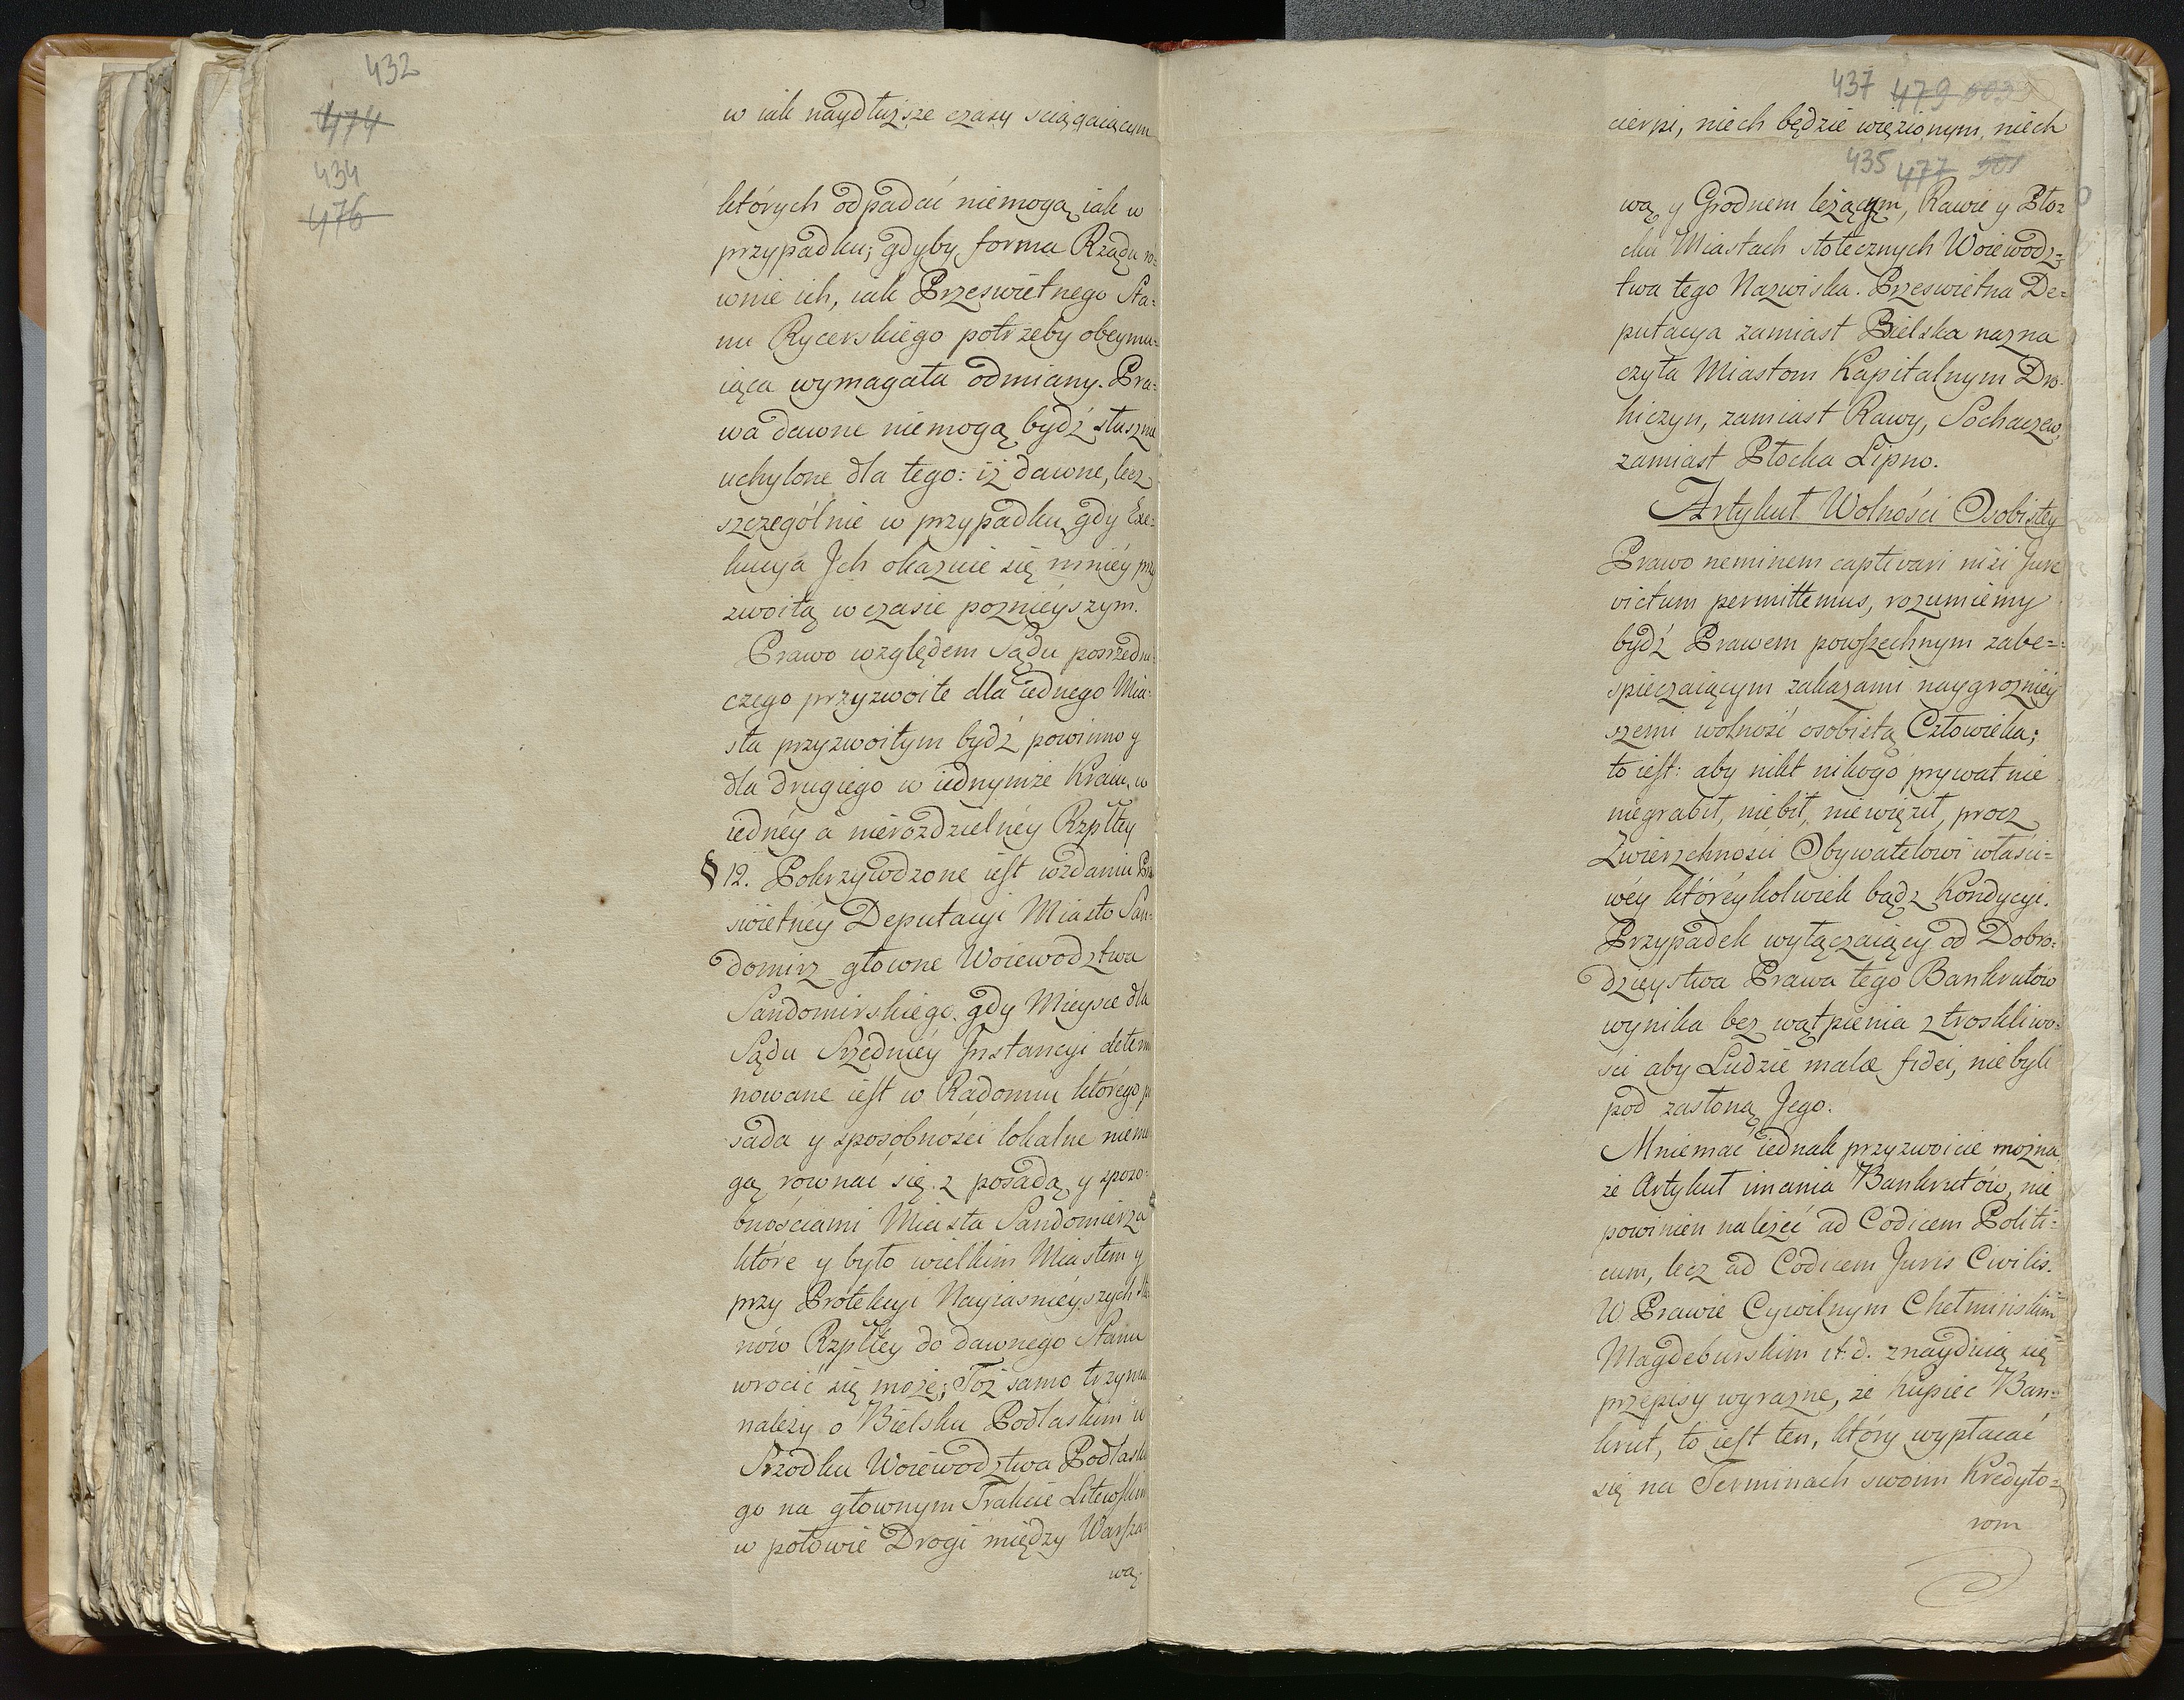 432
474
434
476
w iak naydłuższe czasy sciągaiącym
których odpadać niemogą iak w
przypadku; gdyby forma Rządu ro=
wnie ich, iak Przeswietnego Sta=
nu Rycerskiego potrzeby obeymu=
iąca wymagała odmiany. Pra=
wa dawne niemogą bydź słusznie
uchylone dla tego: iż dawne, lecz
szczególnie w przypadku, gdy Exe=
kucya Jch okazuie się mniéy przy
zwoitą w czasie poznieyszym.
Prawo względem Sądu posrzedni=
czego przyzwoite dla iednego Mia=
sta przyzwoitym bydź powinno y
dla drugiego w iednymże Kraiu, w
iednéy a nierozdzielnéy Rzpltey
§ 12. Pokrzywdzone iest w zdaniu Prze
swietnéy Deputacyi Miasto San=
domirz głowne Woiewodztwa
Sandomirskiego, gdy Mieysce dla
Sądu Srzedniéy Jnstancyi determi
nowane iest w Radomiu którego po
sada y sposobności lokalne niemo
gą rownać się z posadą y sposo=
bnościami Miasta Sandomierza
które y było wielkim Miastem y
przy Protekcyi Nayiasnieyszych Sta
nów Rzpltey do dawnego Stanu
wrocić się może; Toż samo trzyma
należy o Bielsku Podlaskim w
Srzodku Woiewodztwa Podlaskie
go na głownym Trakcie Litewskim
w połowie Drogi między Warsza=
wą
437 479 503
cierpi, niech będzie więzionym, niech
435 477 501
wą y Grodnem leżącym, Rawie y Płoz
cku Miastach stołecznych Woiewodz=
twa tego Nazwiska. Przeswietna De=
putacya zamiast Bielska nazna
czyła Miastom Kapitalnym Dro=
hiczyn, zamiast Rawy, Sochaczew,
zamiast Płocka Lipno.
Artykuł Wolności Osobistey
Prawo neminem captivari nisi Jure
victum permittemus, rozumiemy
bydź Prawem powszechnym zabe=
spieczaiącym zakazami naygrozniey
szemi wolność osobistą Człowieka;
to iest: aby nikt nikogo prywatnie
niegrabił, niebił, niewięził, procz
Zwierzchności Obywatelowi właści=
wéy któréykolwiek bądz Kondycyi.
Przypadek wyłączaiący od Dobro=
dzieystwa Prawa tego Bankrutów
wynika bez wątpienia z troskliwo=
ści aby Ludzie malæ fidei, niebyli
pod zasłoną Jego.
Mniemać iednak przyzwoicie można,
że Artykuł imania Bankrutów, nie
powinien należéć ad Codicem Politi=
cum, lecz ad Codicem Juris Civilis.
W Prawie Cywilnym Chełminskim
Magdeburskim it.d. znayduią się
przepisy wyrazne, że kupiec Ban=
krut, to iest ten, który wypłacać
się na Terminach swoim Kredyto=
rom